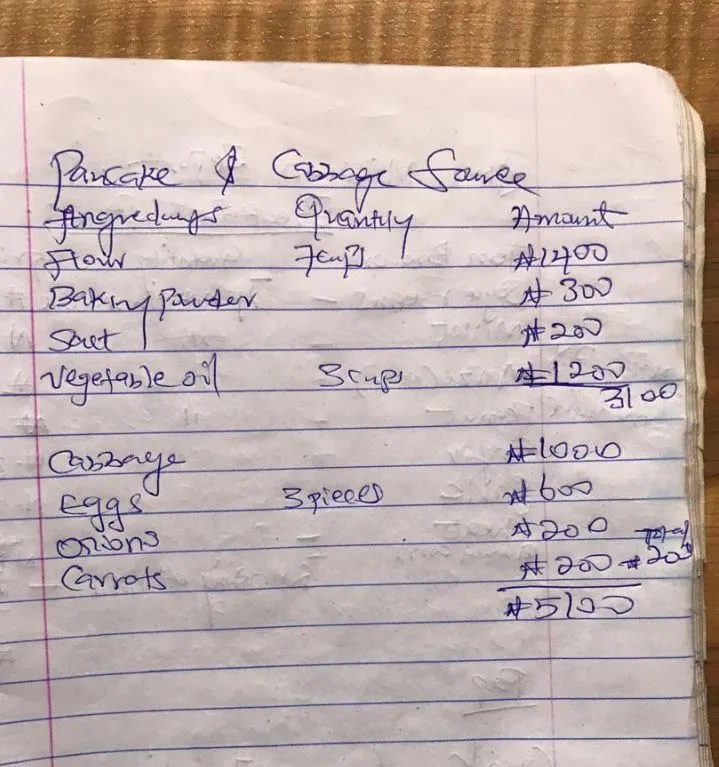 Pancake & Cabbage Sauce
Ingredangs Quantity Amount
Flour 7cups ₦1400
Baking Powder ₦300
Salt ₦200
Vegetable oil 3cups ₦1200
3100
Cabbage ₦1000
Eggs 3 pieces ₦600
Onions ₦200 Total
Carrots ₦200 ₦200
₦5100